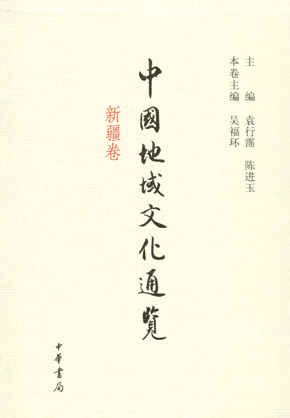 主 编 袁行霈 陈进玉
本卷主编 吴福环
中國地域文化通覽
新疆卷
中華書局